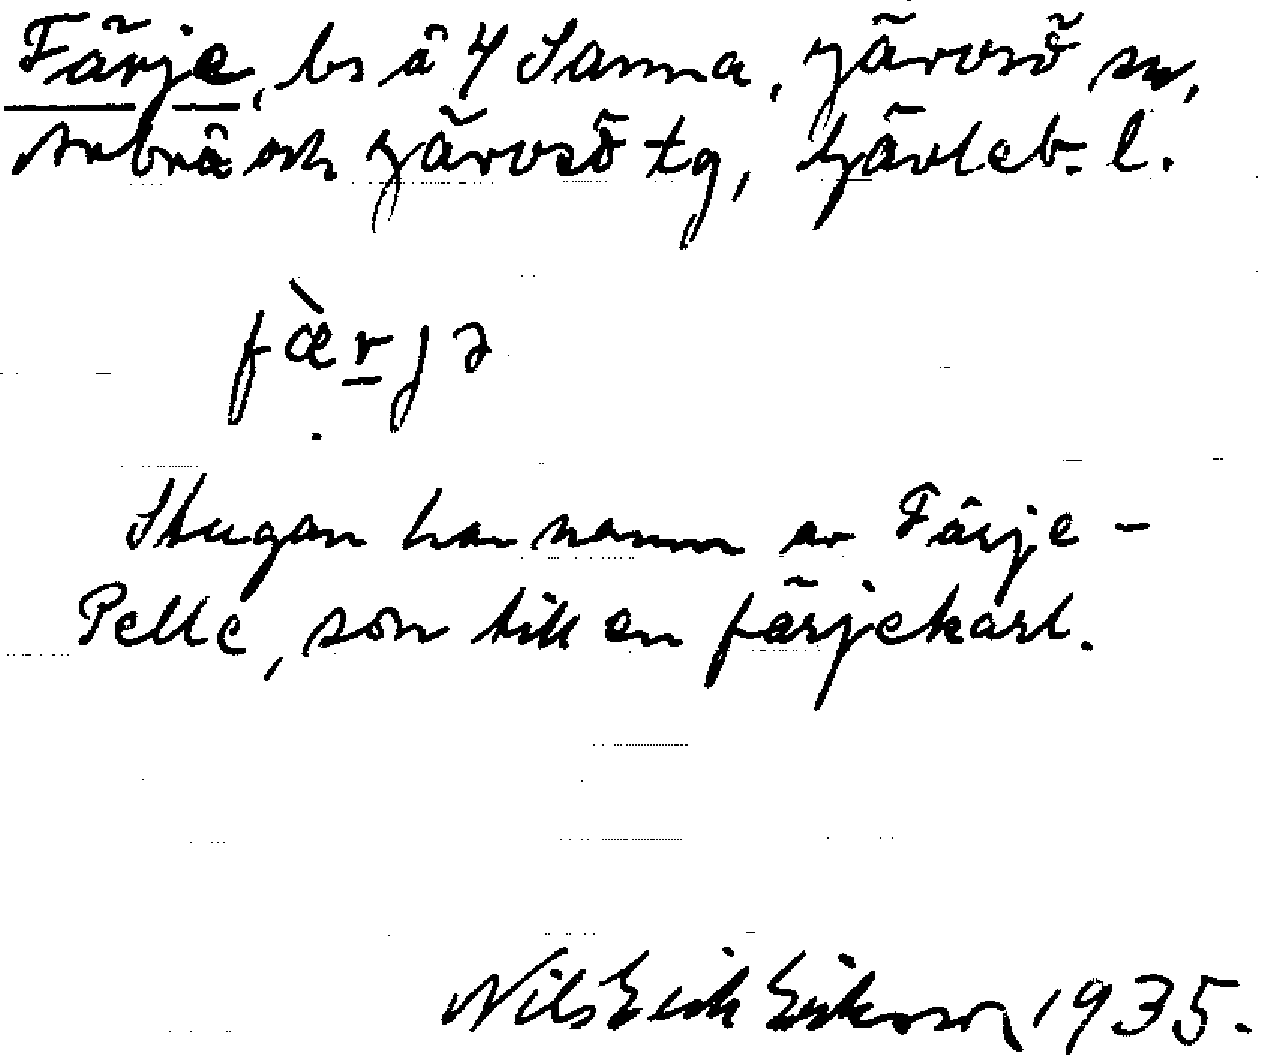 Färje, bs å 4 Sanna, Järvsö sn,
Arbrå och Järvsö tg, Gävleb. l.
fæ̀rjə
Stugan har namn av Färje-
Pelle, son till en färjekarl.
Nils Erik Eriksson, 1935.